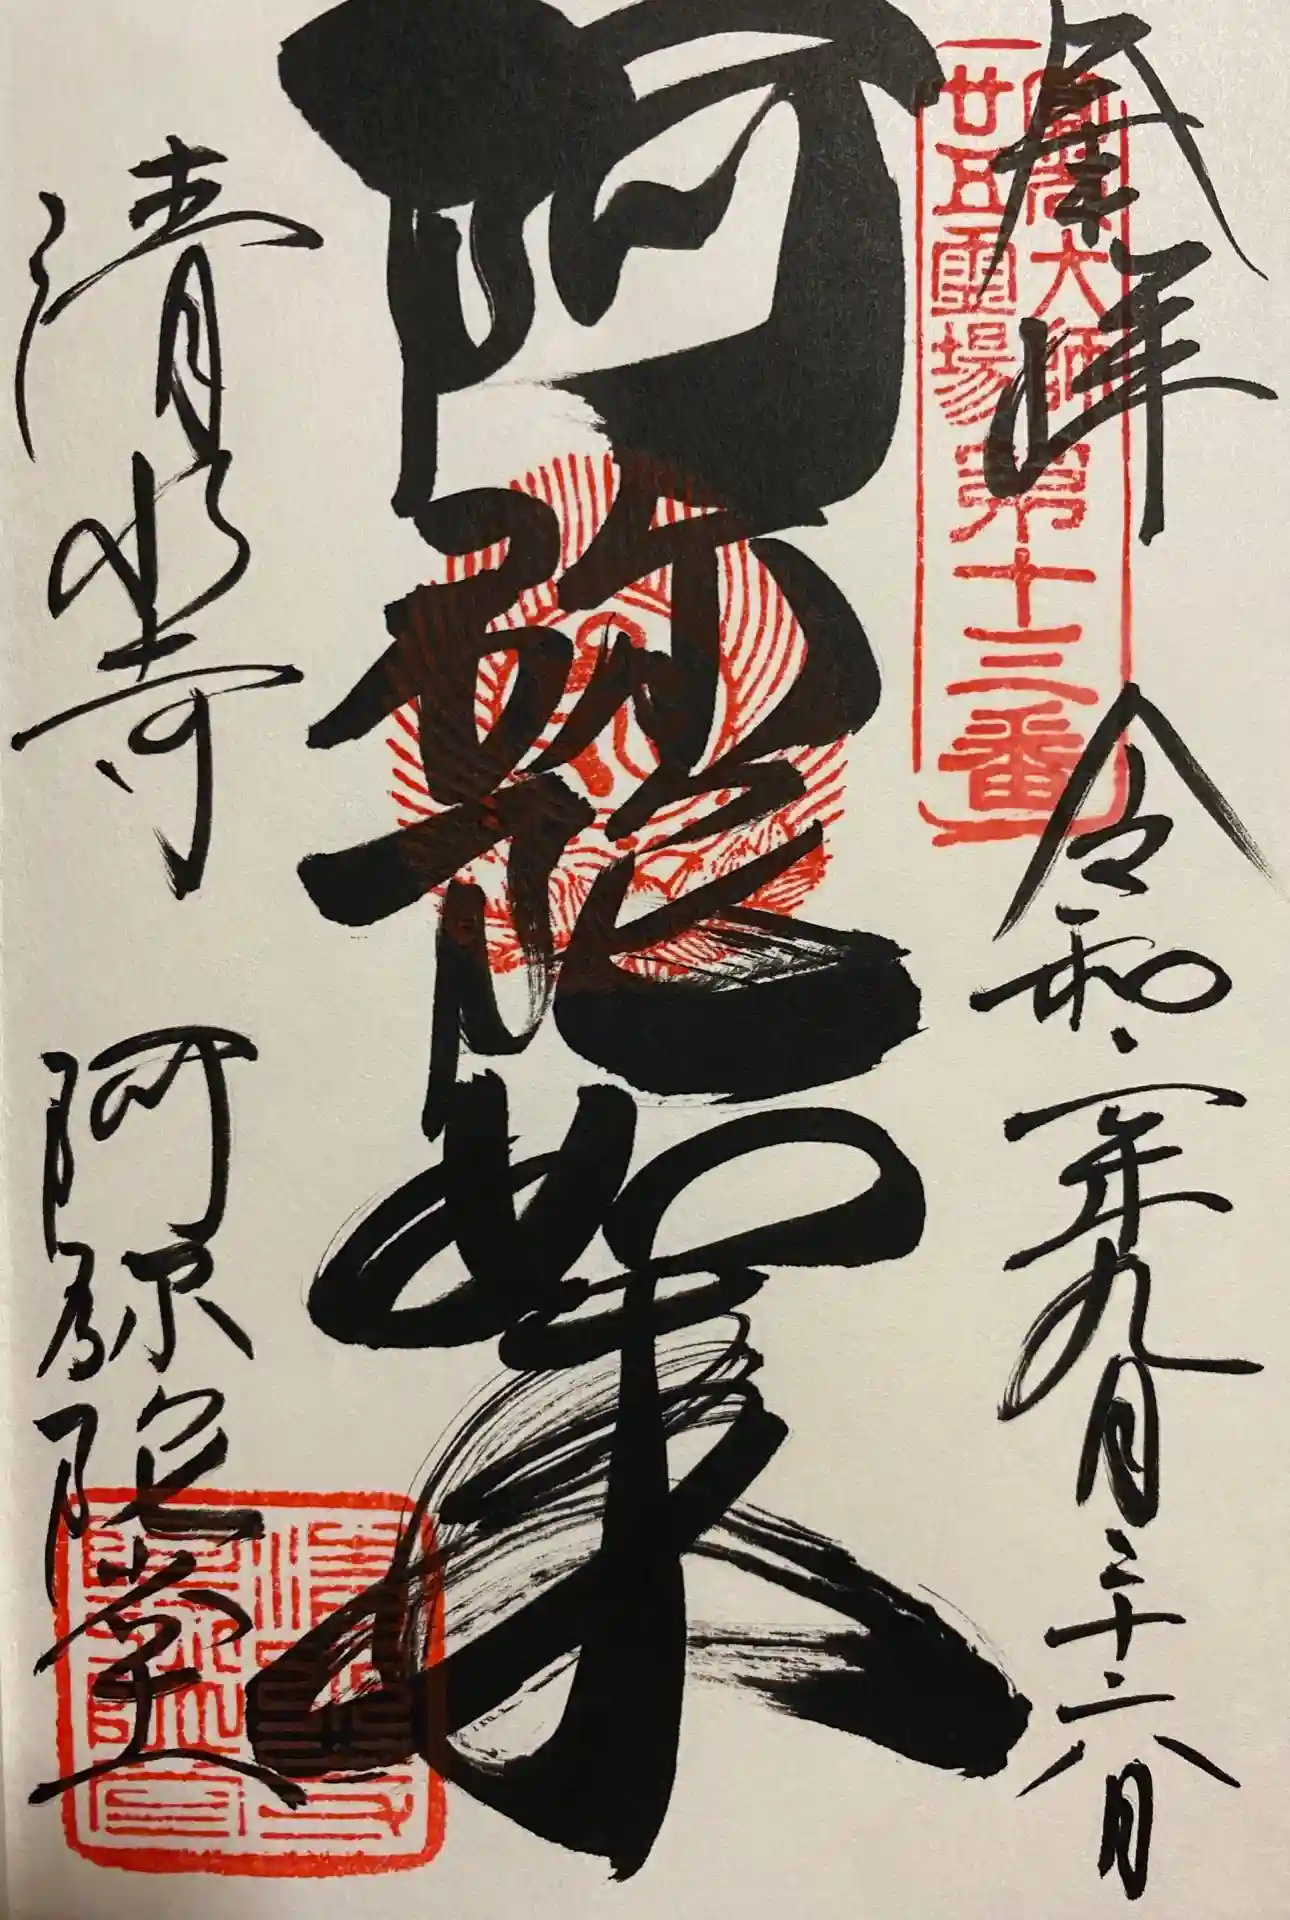 奉拝
令和二年九月二十六日
圓光大師
廿五霊場
第十三番
阿弥陀如来
清水寺
阿弥陀堂